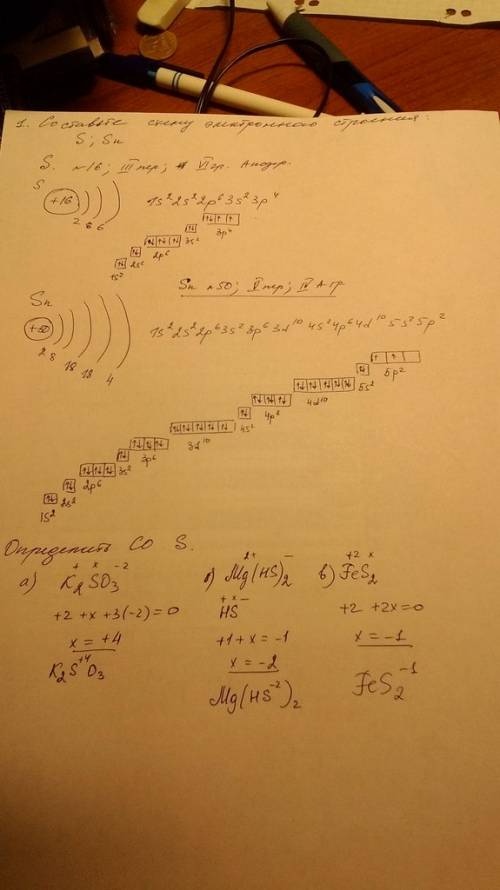 1. Составьте схему электронного строения:
S; Sn
S. №16; III пер; VI гр. А подгр.
S +16
2 8 6
1s² 2s² 2p⁶ 3s² 3p⁴
1s² 2s² 2p⁶ 3s² 3p⁴
Sn №50; V пер; IV А гр
Sn +50
2 8 18 18 4
1s² 2s² 2p⁶ 3s² 3p⁶ 3d¹⁰ 4s² 4p⁶ 4d¹⁰ 5s² 5p²
1s² 2s² 2p⁶ 3s² 3p⁶ 3d¹⁰ 4s² 4p⁶ 4d¹⁰ 5s² 5p²
Определить СО S.
а) K₂SO₃ + x -2
+2 +x +3(-2) = 0
x = +4
K₂S⁺⁴O₃
б) Mg(HS)₂ 2+ -
HS + x -
+1 + x = -1
x = -2
Mg(HS⁻²)₂
в) FeS₂ +2 x
+2 +2x = 0
x = -1
FeS₂⁻¹